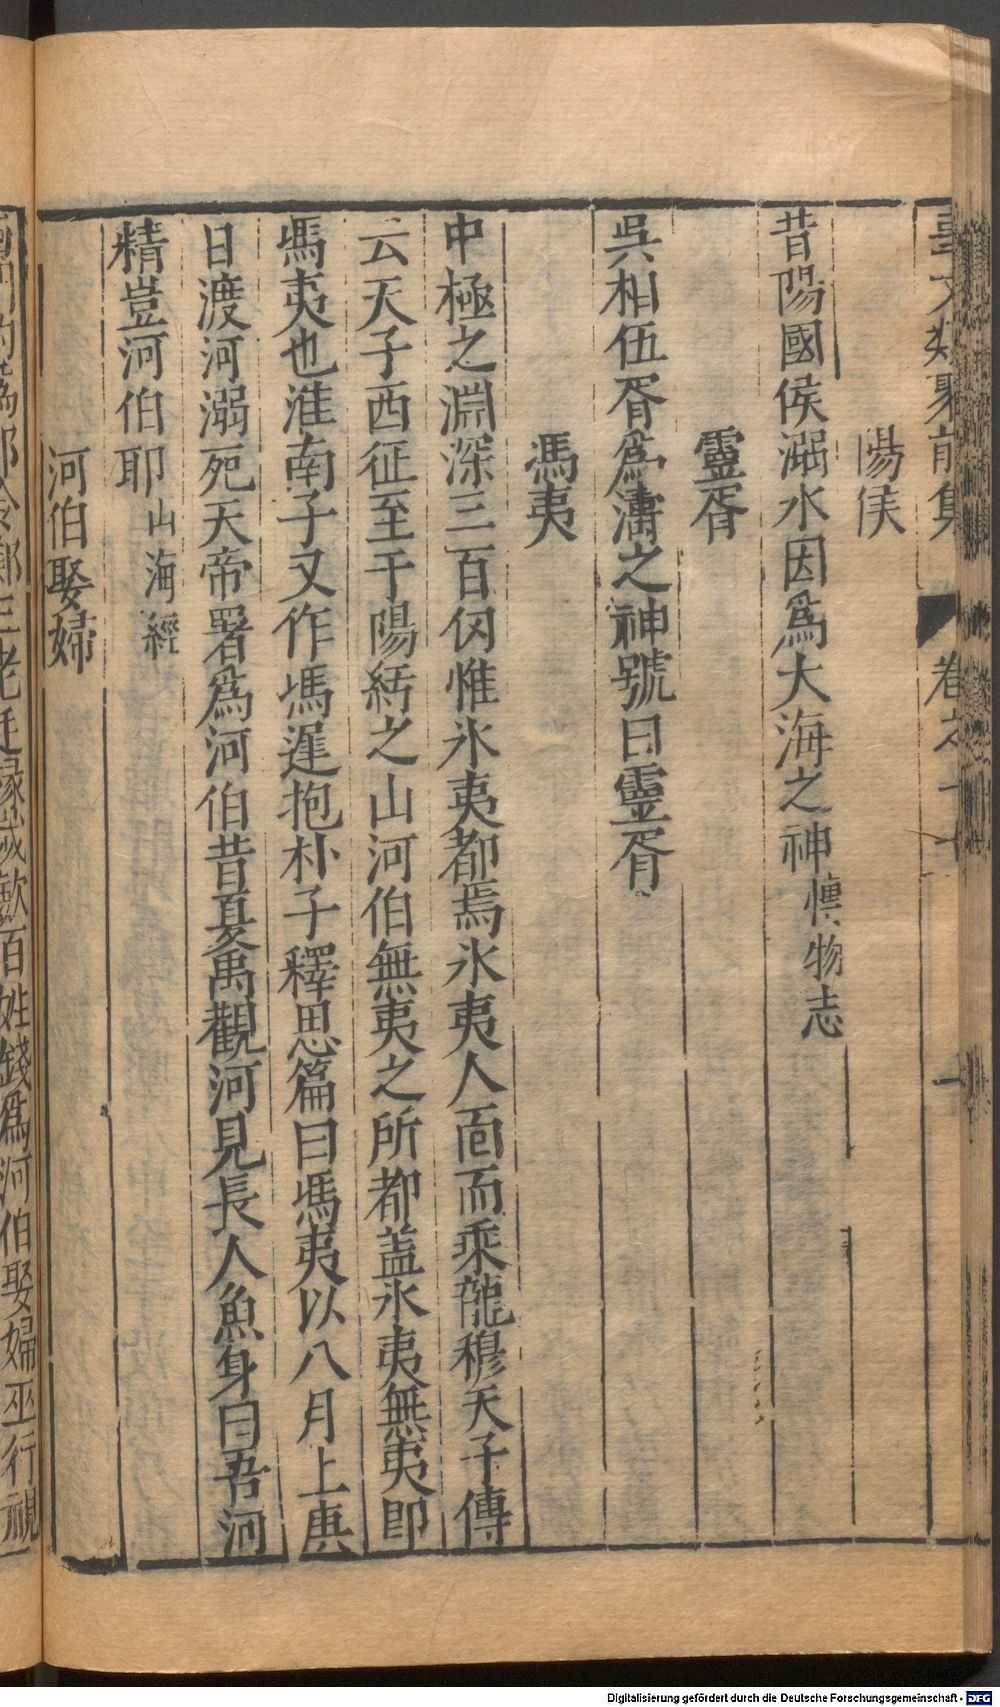 事文類聚前集 卷之十
陽侯
昔陽國侯溺水因爲大海之神愽物志
靈胥
吳相伍胥爲濤之神號曰靈胥
馮夷
中極之淵深三百仞惟氷夷都焉氷夷人面而乘龍穆天子傳
云天子西征至于陽紆之山河伯無夷之所都盖氷夷無夷即
馮夷也淮南子又作馮遲抱朴子釋思篇曰馮夷以八月上庚
日渡河溺死天帝署爲河伯昔夏禹觀河見長人魚身曰吾河
精豈河伯耶山海經
河伯娶婦
三老廷掾歲歛百姓錢爲河伯娶婦巫行視
Digitalisierung gefördert durch die Deutsche Forschungsgemeinschaft - DFG